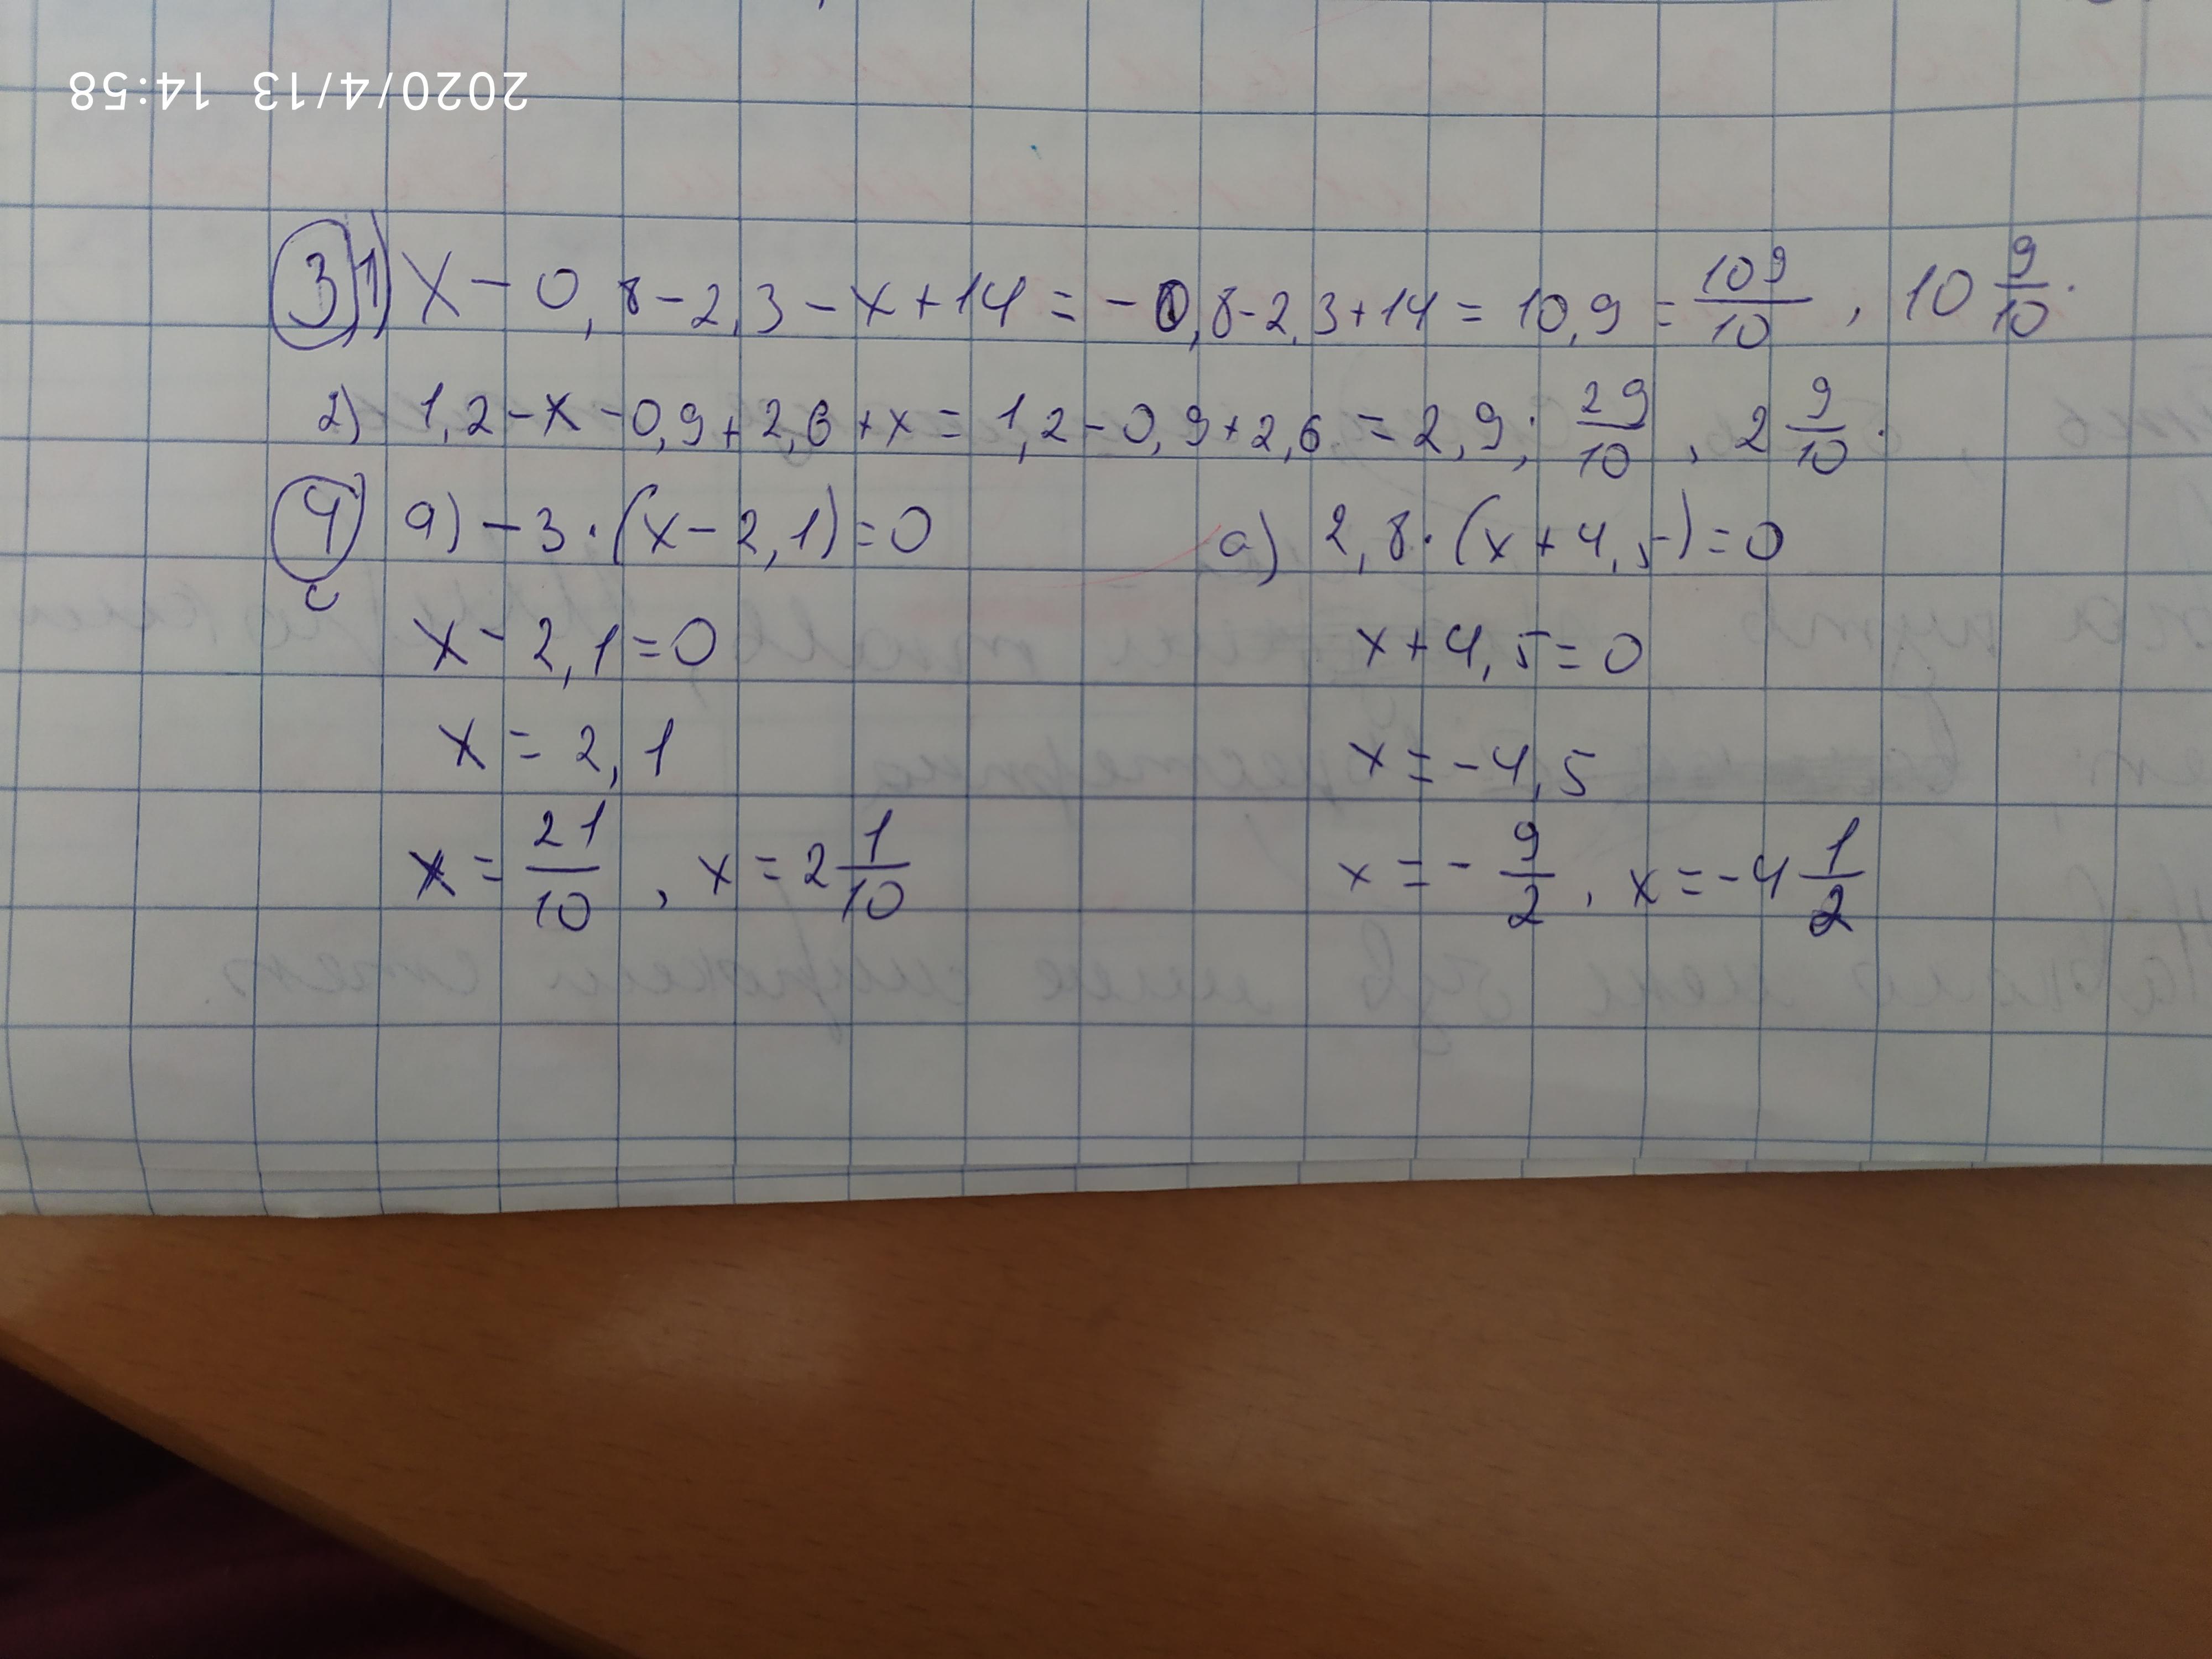 2020/4/13 14:58
3 1) x - 0,8 - 2,3 - x + 14 = - 0,8 - 2,3 + 14 = 10,9 = 109/10 , 10 9/10.
2) 1,2 - x - 0,9 + 2,6 + x = 1,2 - 0,9 + 2,6 = 2,9; 29/10 , 2 9/10.
4 а) - 3 · (x - 2,1) = 0 а) 2,8 · (x + 4,5) = 0
x - 2,1 = 0 x + 4,5 = 0
x = 2,1 x = - 4,5
x = 21/10 , x = 2 1/10 x = - 9/2 , x = - 4 1/2